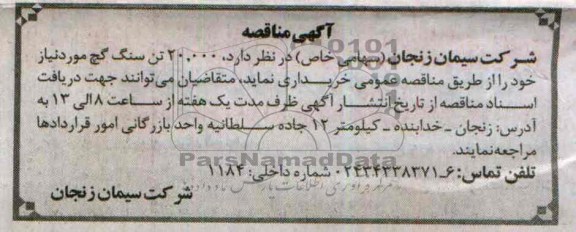 آگهی مناقصه
شرکت سیمان زنجان (سهامی خاص) در نظر دارد، ۲۰,۰۰۰ تن سنگ گچ موردنیاز
خود را از طریق مناقصه عمومی خریداری نماید، متقاضیان می‌توانند جهت دریافت
اسناد مناقصه از تاریخ انتشار آگهی ظرف مدت یک هفته از ساعت ۸ الی ۱۳ به
آدرس: زنجان ـ خدابنده ـ کیلومتر ۱۲ جاده سلطانیه واحد بازرگانی امور قراردادها
مراجعه نمایند.
ParsNamadData
تلفن تماس: ۶-۰۲۴۳۴۲۳۸۳۷۱ شماره داخلی: ۱۱۸۴
شرکت سیمان زنجان